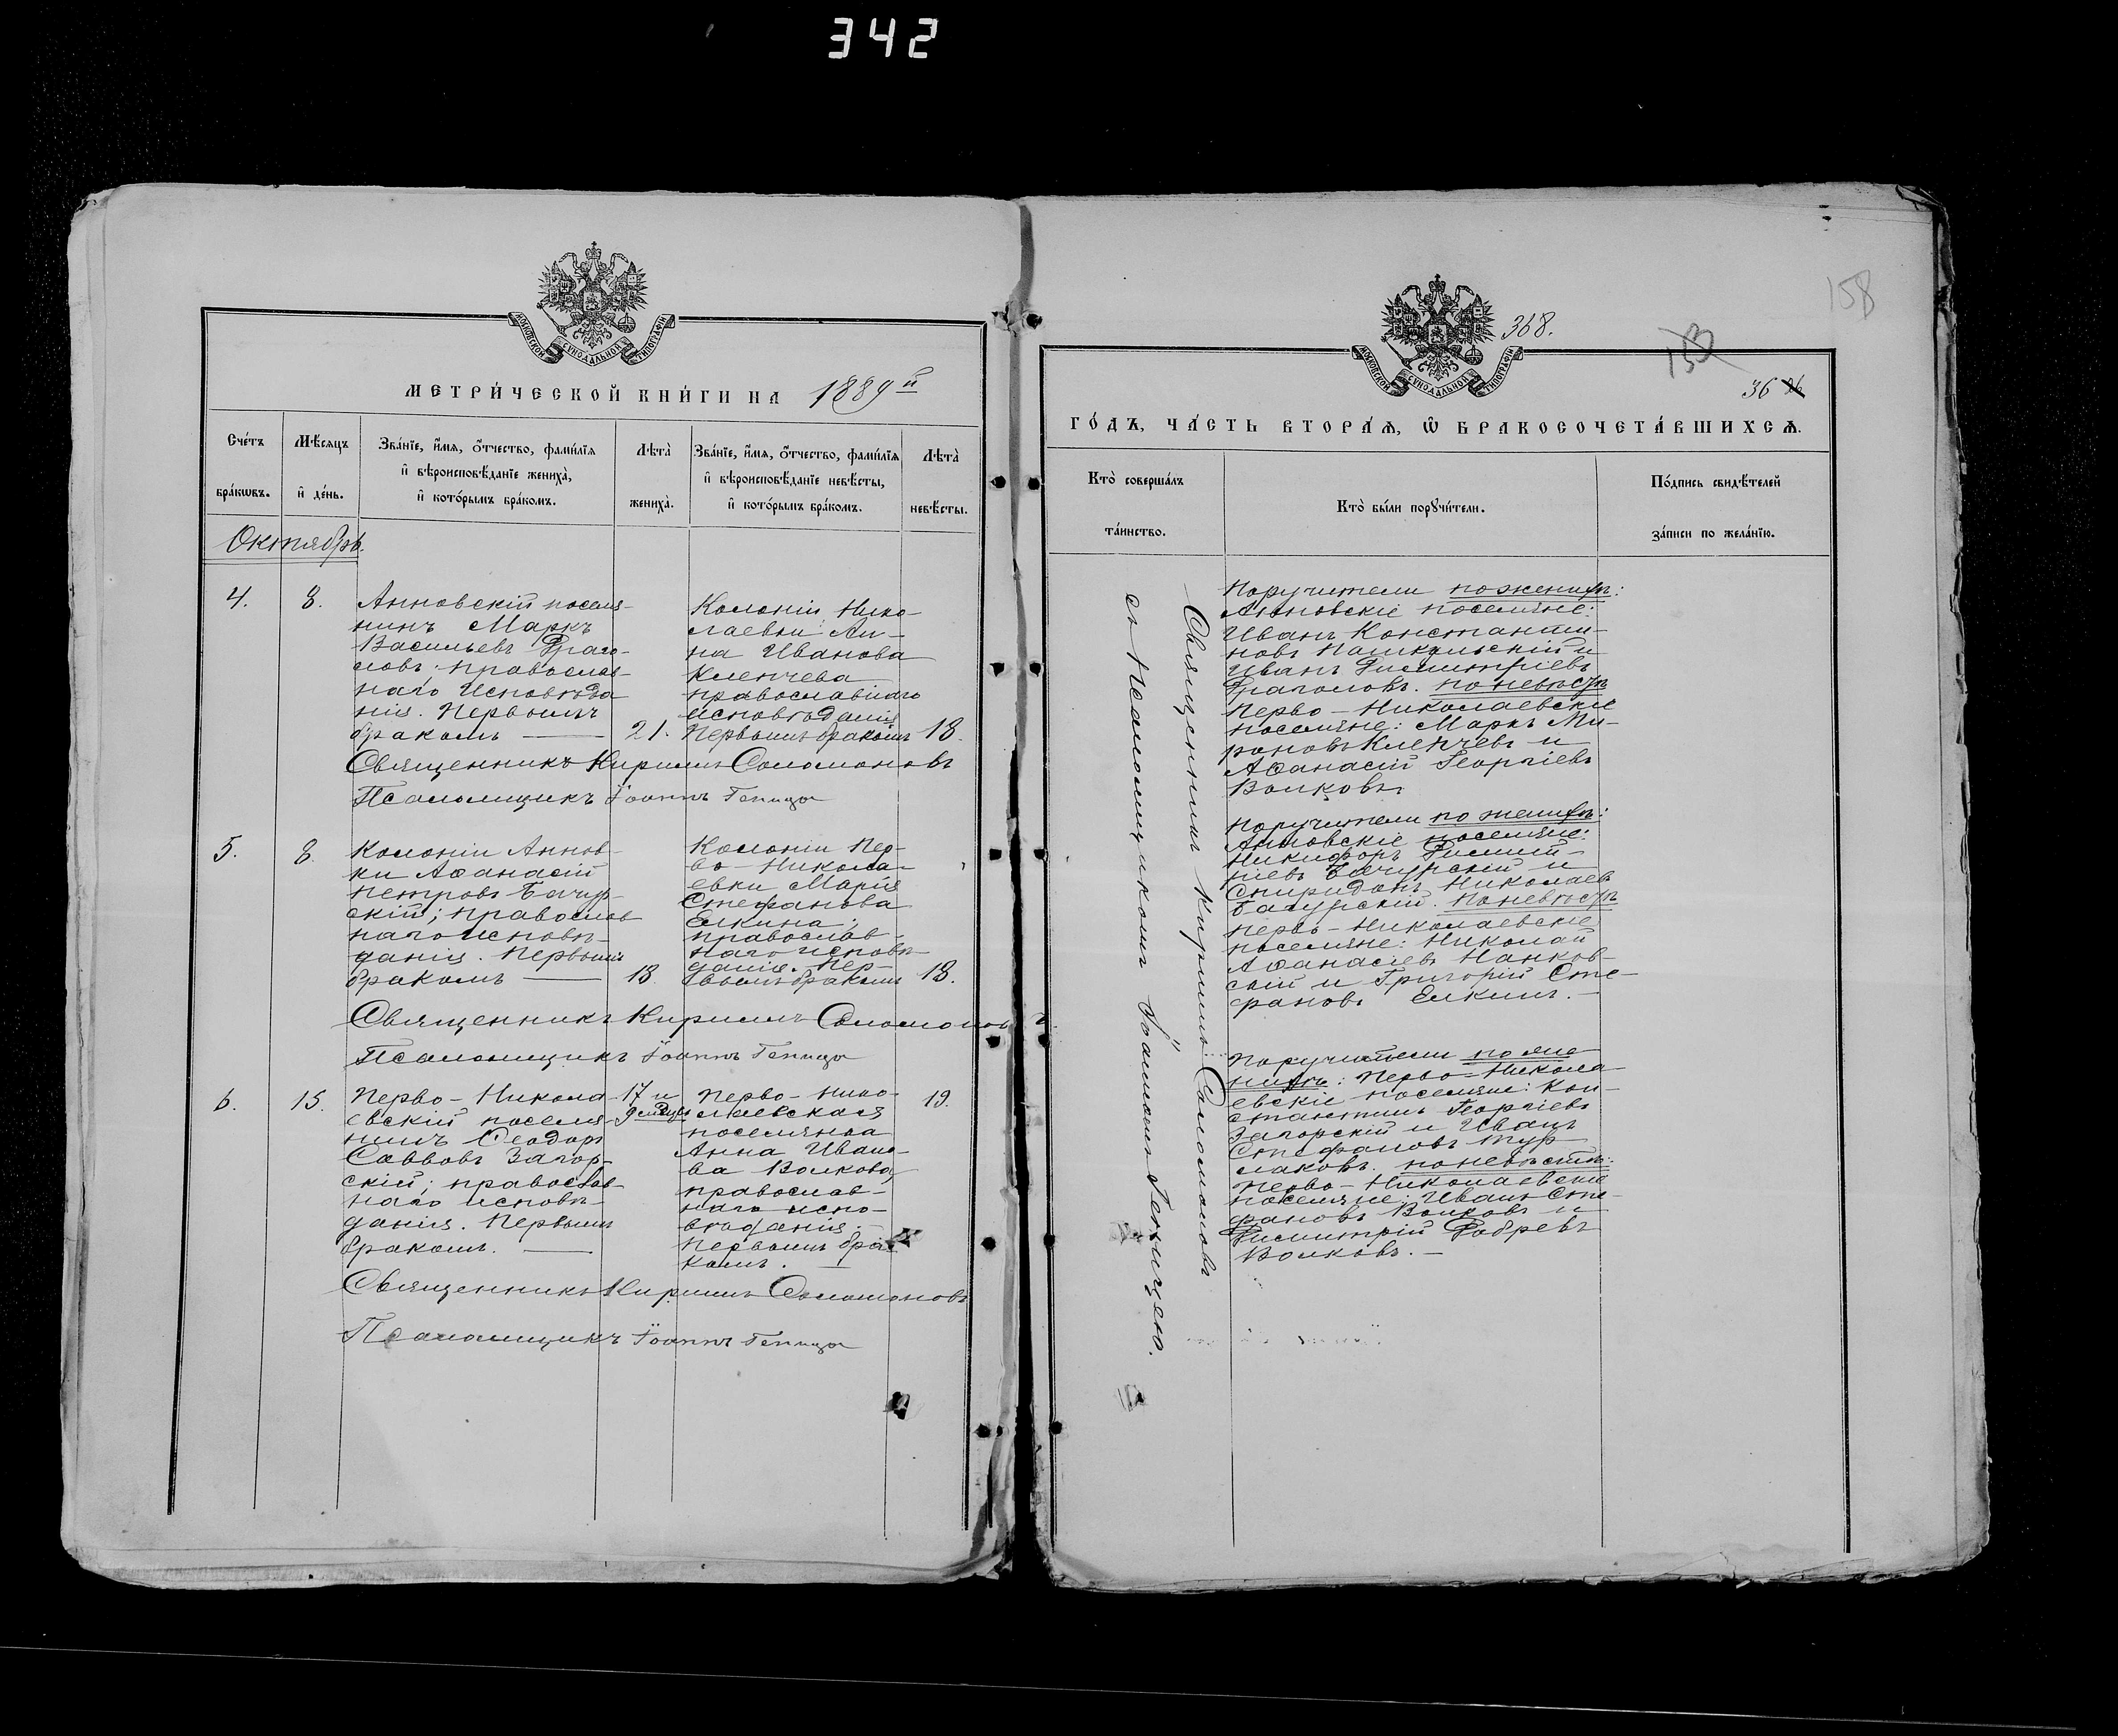 342
МОСКОВСКОЙ СУНОДАЛЬНОЙ ТИПОГРАФІИ
МЕТРИ́ЧЕСКОЙ КНИ́ГИ НА 1889й
Сче́тъ бра́кѡвъ.
Мѣ́сяцъ и҆ де́нь.
Зва́нїе, и҆́мѧ, ѻ҆́тчество, фами́лїѧ
и҆ вѣроисповѣ́данїе жениха̀,
и҆ кото́рымъ бра́комъ.
Лѣта̀ жениха̀.
Зва́нїе, и҆́мѧ, ѻ҆́тчество, фами́лїѧ
и҆ вѣроисповѣ́данїе невѣ́сты,
и҆ кото́рымъ бра́комъ.
Лѣта̀ невѣ́сты.
Октябрь.
4.
8.
Анновскій поселя-
нинъ Маркъ
Васильевъ Драго-
ловъ. православ-
наго Исповѣда
нія. Первымъ
бракомъ
21.
Колоніи Нико-
лаевки Ан-
на Иванова
Кленчева
православнаго
исповѣданія
Первымъ бракомъ
18.
Священникъ Кириллъ Соломоновъ
Псаломщикъ Іоаннъ
5.
8.
Колоніи Аннов-
ки Аѳанасій
Петровъ Бачур-
скій; православ
наго исповѣ-
данія. Первымъ
бракомъ
18.
Колоніи Пер-
во-Никола-
евки Марія
Стефанова
Елкина;
православ-
наго исповѣ-
данія. Пер-
вымъ бракомъ
18.
Священникъ Кириллъ Соломоновъ
Псаломщикъ Іоаннъ
6.
15.
Перво-Никола-
евскій поселя-
нинъ Ѳеодоръ
Саввовъ Загор-
скій; православ-
наго исповѣ-
данія. Первымъ
бракомъ.
17 и
9 мѣсяц.
Перво-Нико-
лаевская
поселянка
Анна Ивано-
ва Волкова,
православ-
наго испо-
вѣданія.
Первымъ бра-
комъ.
19.
Священникъ Кириллъ Соломоновъ
Псаломщикъ Іоаннъ
158
368.
МОСКОВСКОЙ СУНОДАЛЬНОЙ ТИПОГРАФІИ
36
ГО́ДЪ, ЧА́СТЬ ВТОРА́Ѧ, Ѡ҆ БРАКОСОЧЕТА́ВШИХСѦ.
Кто̀ соверша́лъ
та́инство.
Кто̀ бы́ли порꙋчи́тели.
По́дпись свидѣ́телей
за́писи по жела́нїю.
Священникъ Кириллъ Соломоновъ
съ Псаломщикомъ Іоанномъ
Поручители по женихѣ:
Анновскіе поселяне:
Иванъ Константи-
новъ Пашкульскій и
Иванъ Димитріевъ
Драголовъ. по невѣстѣ
Перво-Николаевскіе
поселяне: Маркъ Ми-
роновъ Кленчевъ и
Аѳанасій Георгіевъ
Волковъ.
Поручители по женихѣ:
Анновскіе поселяне:
Никифоръ Димит-
ріевъ Бачурскій и
Спиридонъ Николаевъ
Бачурскій. По невѣстѣ
Перво-Николаевскіе
поселяне: Николай
Аѳанасіевъ Нанков-
скій и Григорій Сте-
фановъ Елкинъ.
Поручители по же-
нихѣ: Перво-Никола-
евскіе поселяне: Кон-
стантинъ Георгіевъ
Загорскій и Иванъ
Стефановъ Тур-
лаковъ. по невѣстѣ:
Перво-Николаевскіе
поселяне: Иванъ Сте-
фановъ Волковъ и
Димитрій
Волковъ.